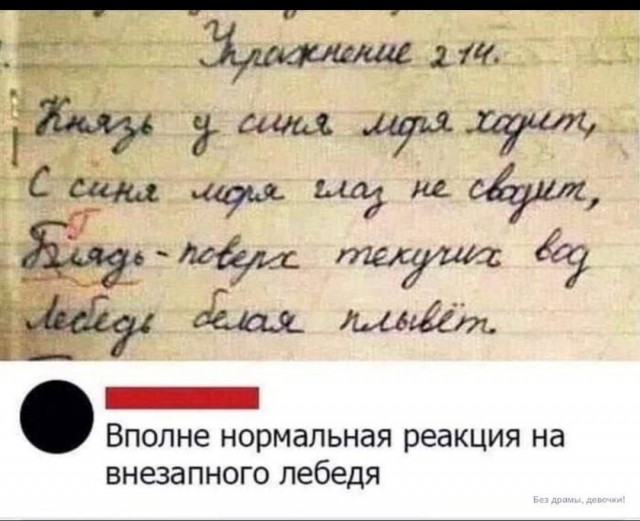 Упражнение 214.
Князь у синя моря ходит,
С синя моря глаз не сводит,
Г
Блядь - поверх текучих вод
Лебедь белая плывёт.
Вполне нормальная реакция на
внезапного лебедя
Без драмы, девочки!